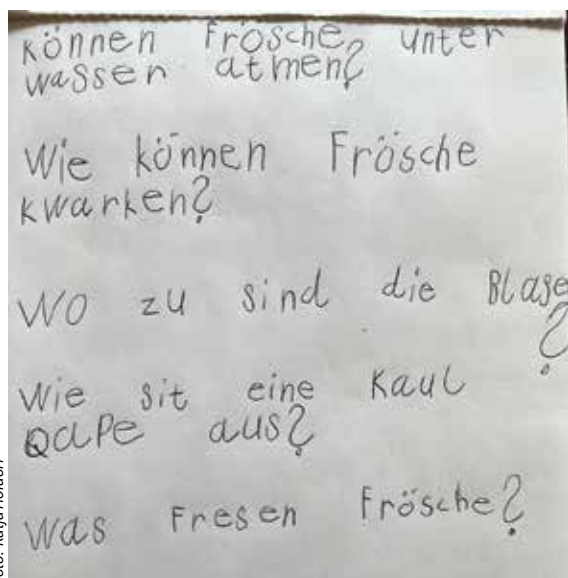 können Frösche unter
wassen atmen?
Wie können Frösche
kwarken?
WO zu sind die Blase
?
Wie sit eine Kaul
Qape aus?
Was Fresen Frösche?